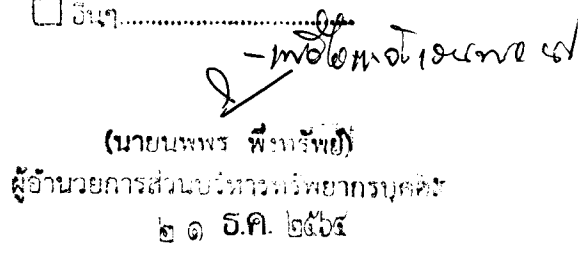 ☐ อื่นๆ....................................
(นายนพพร พึ่งทรัพย์)
ผู้อำนวยการส่วนบริหารทรัพยากรบุคคล
๒ ๑ ธ.ค. ๒๕๖๔